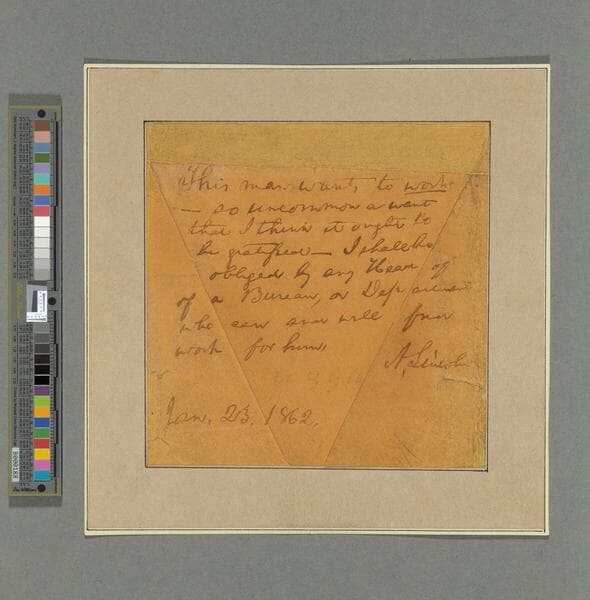 This man wants to work
— so uncommon a want
that I think it ought to
be gratified — I shall be
obliged by any Head of
of a Bureau, or Department
who can and will find
work for him.
A. Lincoln
Jan. 23, 1862.